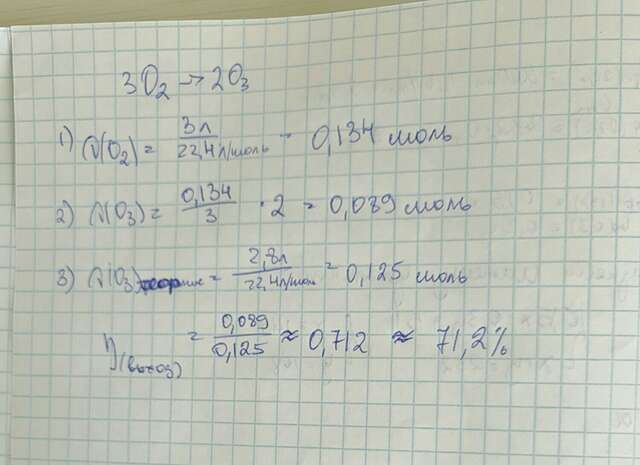 3O₂ → 2O₃
1) ν(O₂) = 3л / 22,4л/моль = 0,134 моль
2) ν(O₃) = 0,134 / 3 · 2 = 0,089 моль
3) ν(O₃) = 2,8л / 22,4л/моль = 0,125 моль
η(выход) = 0,089 / 0,125 ≈ 0,712 ≈ 71,2%